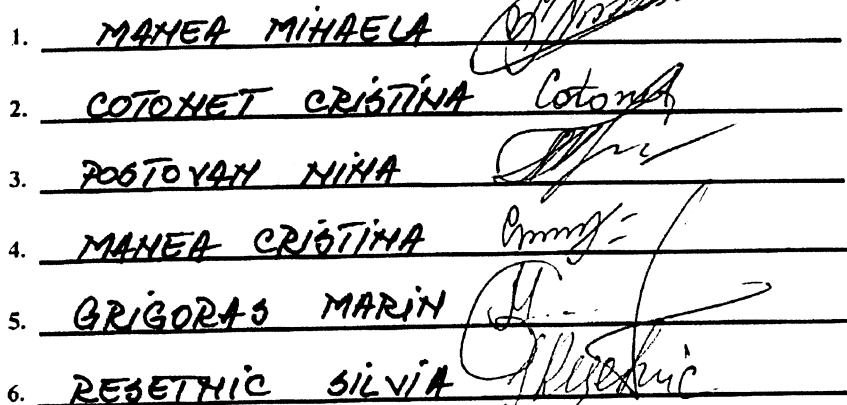 1. MANEA MIHAELA
2. COTONET CRISTINA Cotonet
3. POSTOVAN NINA
4. MANEA CRISTINA
5. GRIGORAS MARIN
6. RESETNIC SILVIA